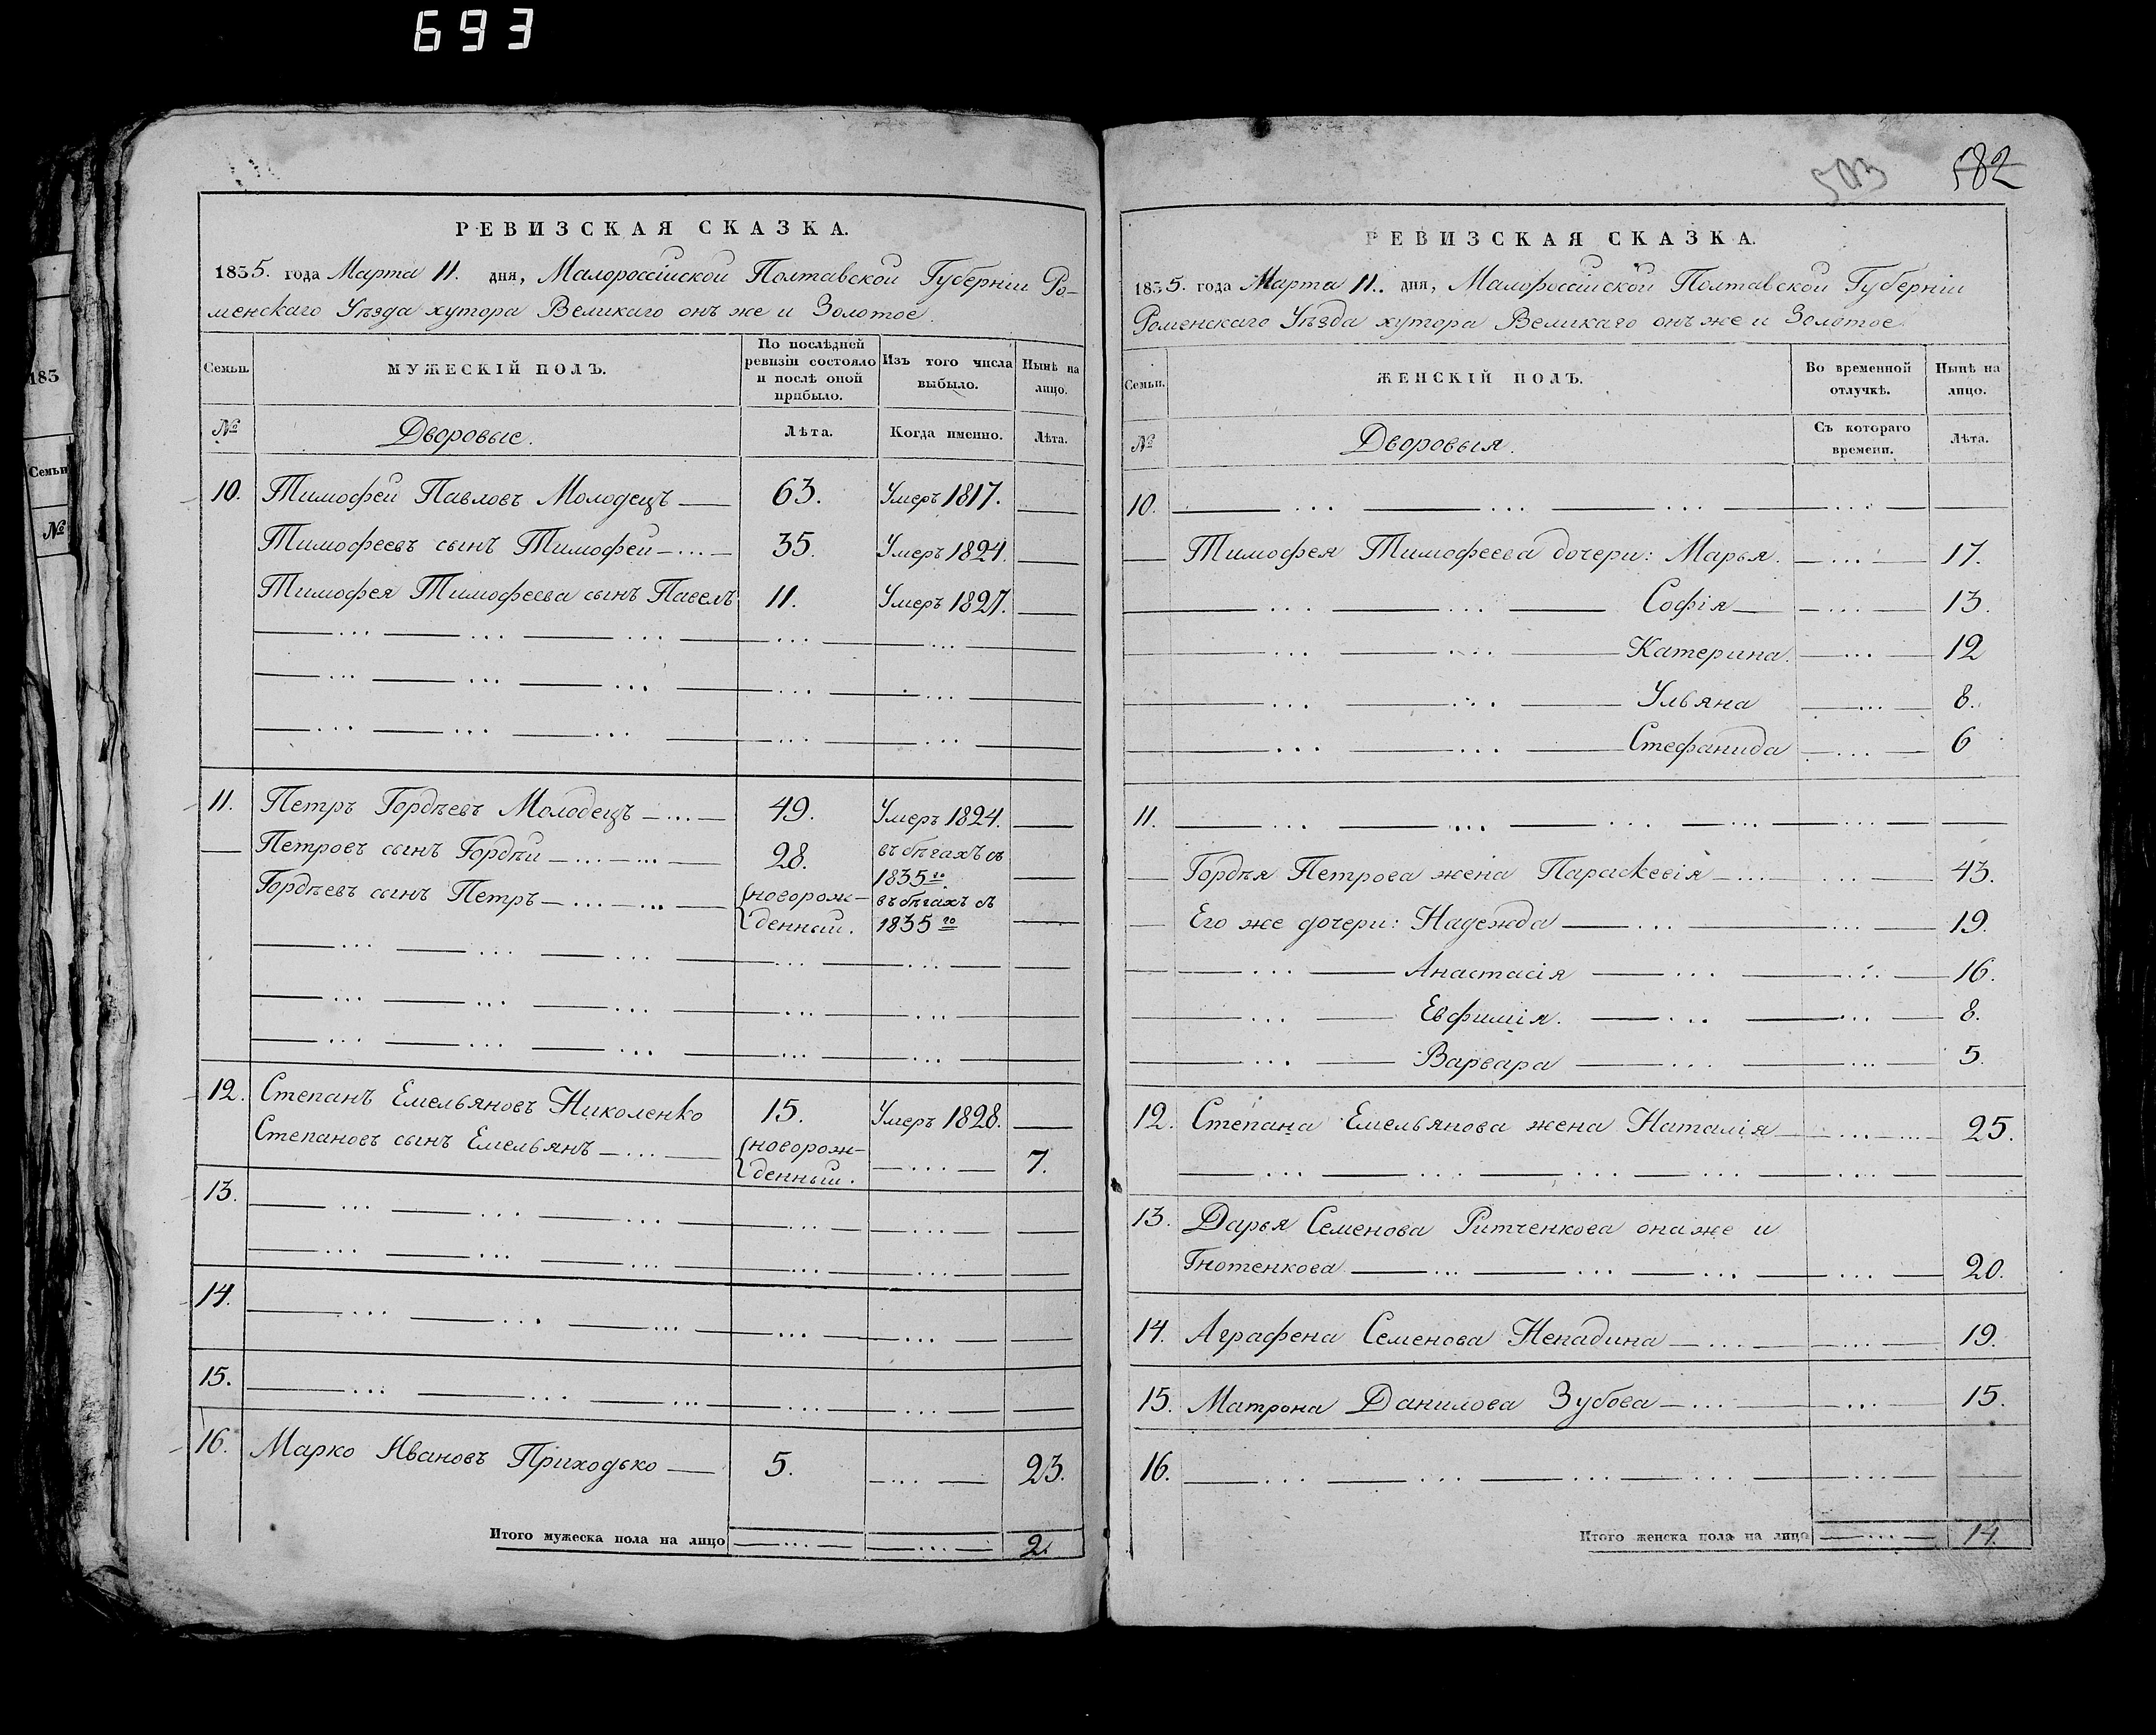 693
РЕВИЗСКАЯ СКАЗКА.
1835. года Марта 11. дня, Малороссійской Полтавской Губерніи Ро-
менскаго Уѣзда хутора Великаго онъ же и Золотое.
Семьи.
МУЖЕСКІЙ ПОЛЪ.
По послѣдней ревизіи состояло и послѣ оной прибыло.
Изъ того числа выбыло.
Нынѣ на лицо.
№ Дворовые. Лѣта. Когда именно. Лѣта.
10. Тимофей Павловъ Молодецъ 63. Умеръ 1817.
Тимофеевъ сынъ Тимофей 35. Умеръ 1824.
Тимофея Тимофеева сынъ Павелъ 11. Умеръ 1827.
11. Петръ Гордѣевъ Молодецъ 49. Умеръ 1824.
Петровъ сынъ Гордѣй 28. въ бѣгахъ съ
1835го
Гордѣевъ сынъ Петръ новорож- въ бѣгахъ съ
денный. 1835го
12. Степанъ Емельяновъ Николенко 15. Умеръ 1828.
Степановъ сынъ Емельянъ новорож-
денный. 7.
13.
14.
15.
16. Марко Ивановъ Приходько 5. 23.
Итого мужеска пола на лицо 2.
503 582
РЕВИЗСКАЯ СКАЗКА.
1835. года Марта 11. дня, Малороссійской Полтавской Губерніи
Роменскаго Уѣзда хутора Великаго онъ же и Золотое.
Семьи.
ЖЕНСКІЙ ПОЛЪ.
Во временной отлучкѣ.
Нынѣ на лицо.
№ Дворовыя. Съ котораго времени. Лѣта.
10.
Тимофея Тимофеева дочери: Марья. 17.
Софія 13.
Катерина. 12
Ульяна 8.
Стефанида 6
11.
Гордѣя Петрова жена Параскевія 43.
Его же дочери: Надежда 19.
Анастасія 16.
Евфимія. 8.
Варвара 5.
12. Степана Емельянова жена Наталія 25.
13. Дарья Семенова Ритченкова она же и
Гнотенкова 20.
14. Аграфена Семенова Непадина 19.
15. Матрона Данилова Зубова 15.
16.
Итого женска пола на лицо 14.
183
Семьи
№